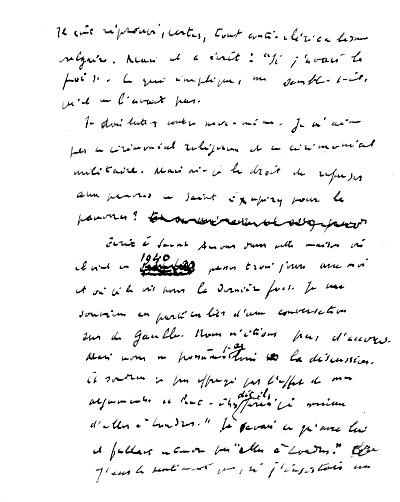 Il eût réprouvé, certes, tout anti-cléricalisme
vulgaire. Mais il a écrit : "Si j'avais la
foi". Ce qui implique, me semble-t-il,
qu'il ne l'avait pas.
Je dois lutter contre moi-même. Je n'aime
pas ce cérémonial religieux et ce cérémonial
militaire. Mais ai-je le droit de refuser
aux pauvres un Saint Exupéry pour les
pauvres ?
Écrit à Saint Amour dans cette maison où
il vint en 1940 passer trois jours avec moi
et où je le vis pour la dernière fois. Je me
souviens en particulier d'une conversation
sur de Gaulle. Nous n'étions pas d'accord.
Mais nous ne poussâmes pas loin la discussion.
Et soudain
arguments et
d'aller à Londres." Je savais qu'avec lui
il fallait "aller à Londres."
J'eus le sentiment que, si j'insistais